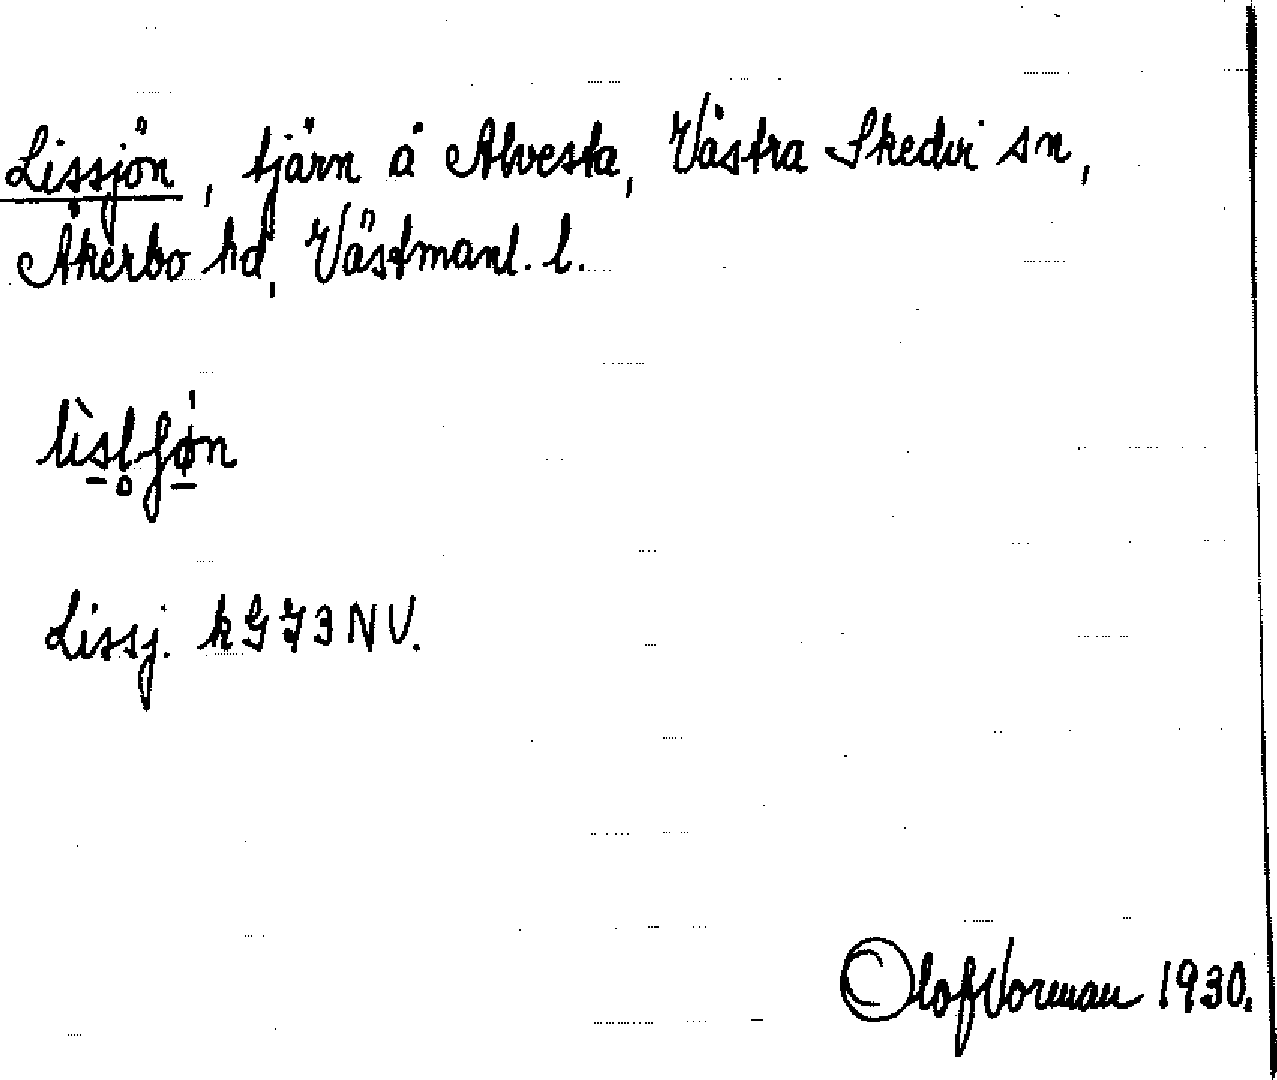 Lissjön, tjärn å Alvesta, Västra Skedvi sn,
Åkerbo hd, Västmanl. l.
Lissj. kGJ3NV.
Olof Vorman 1930.